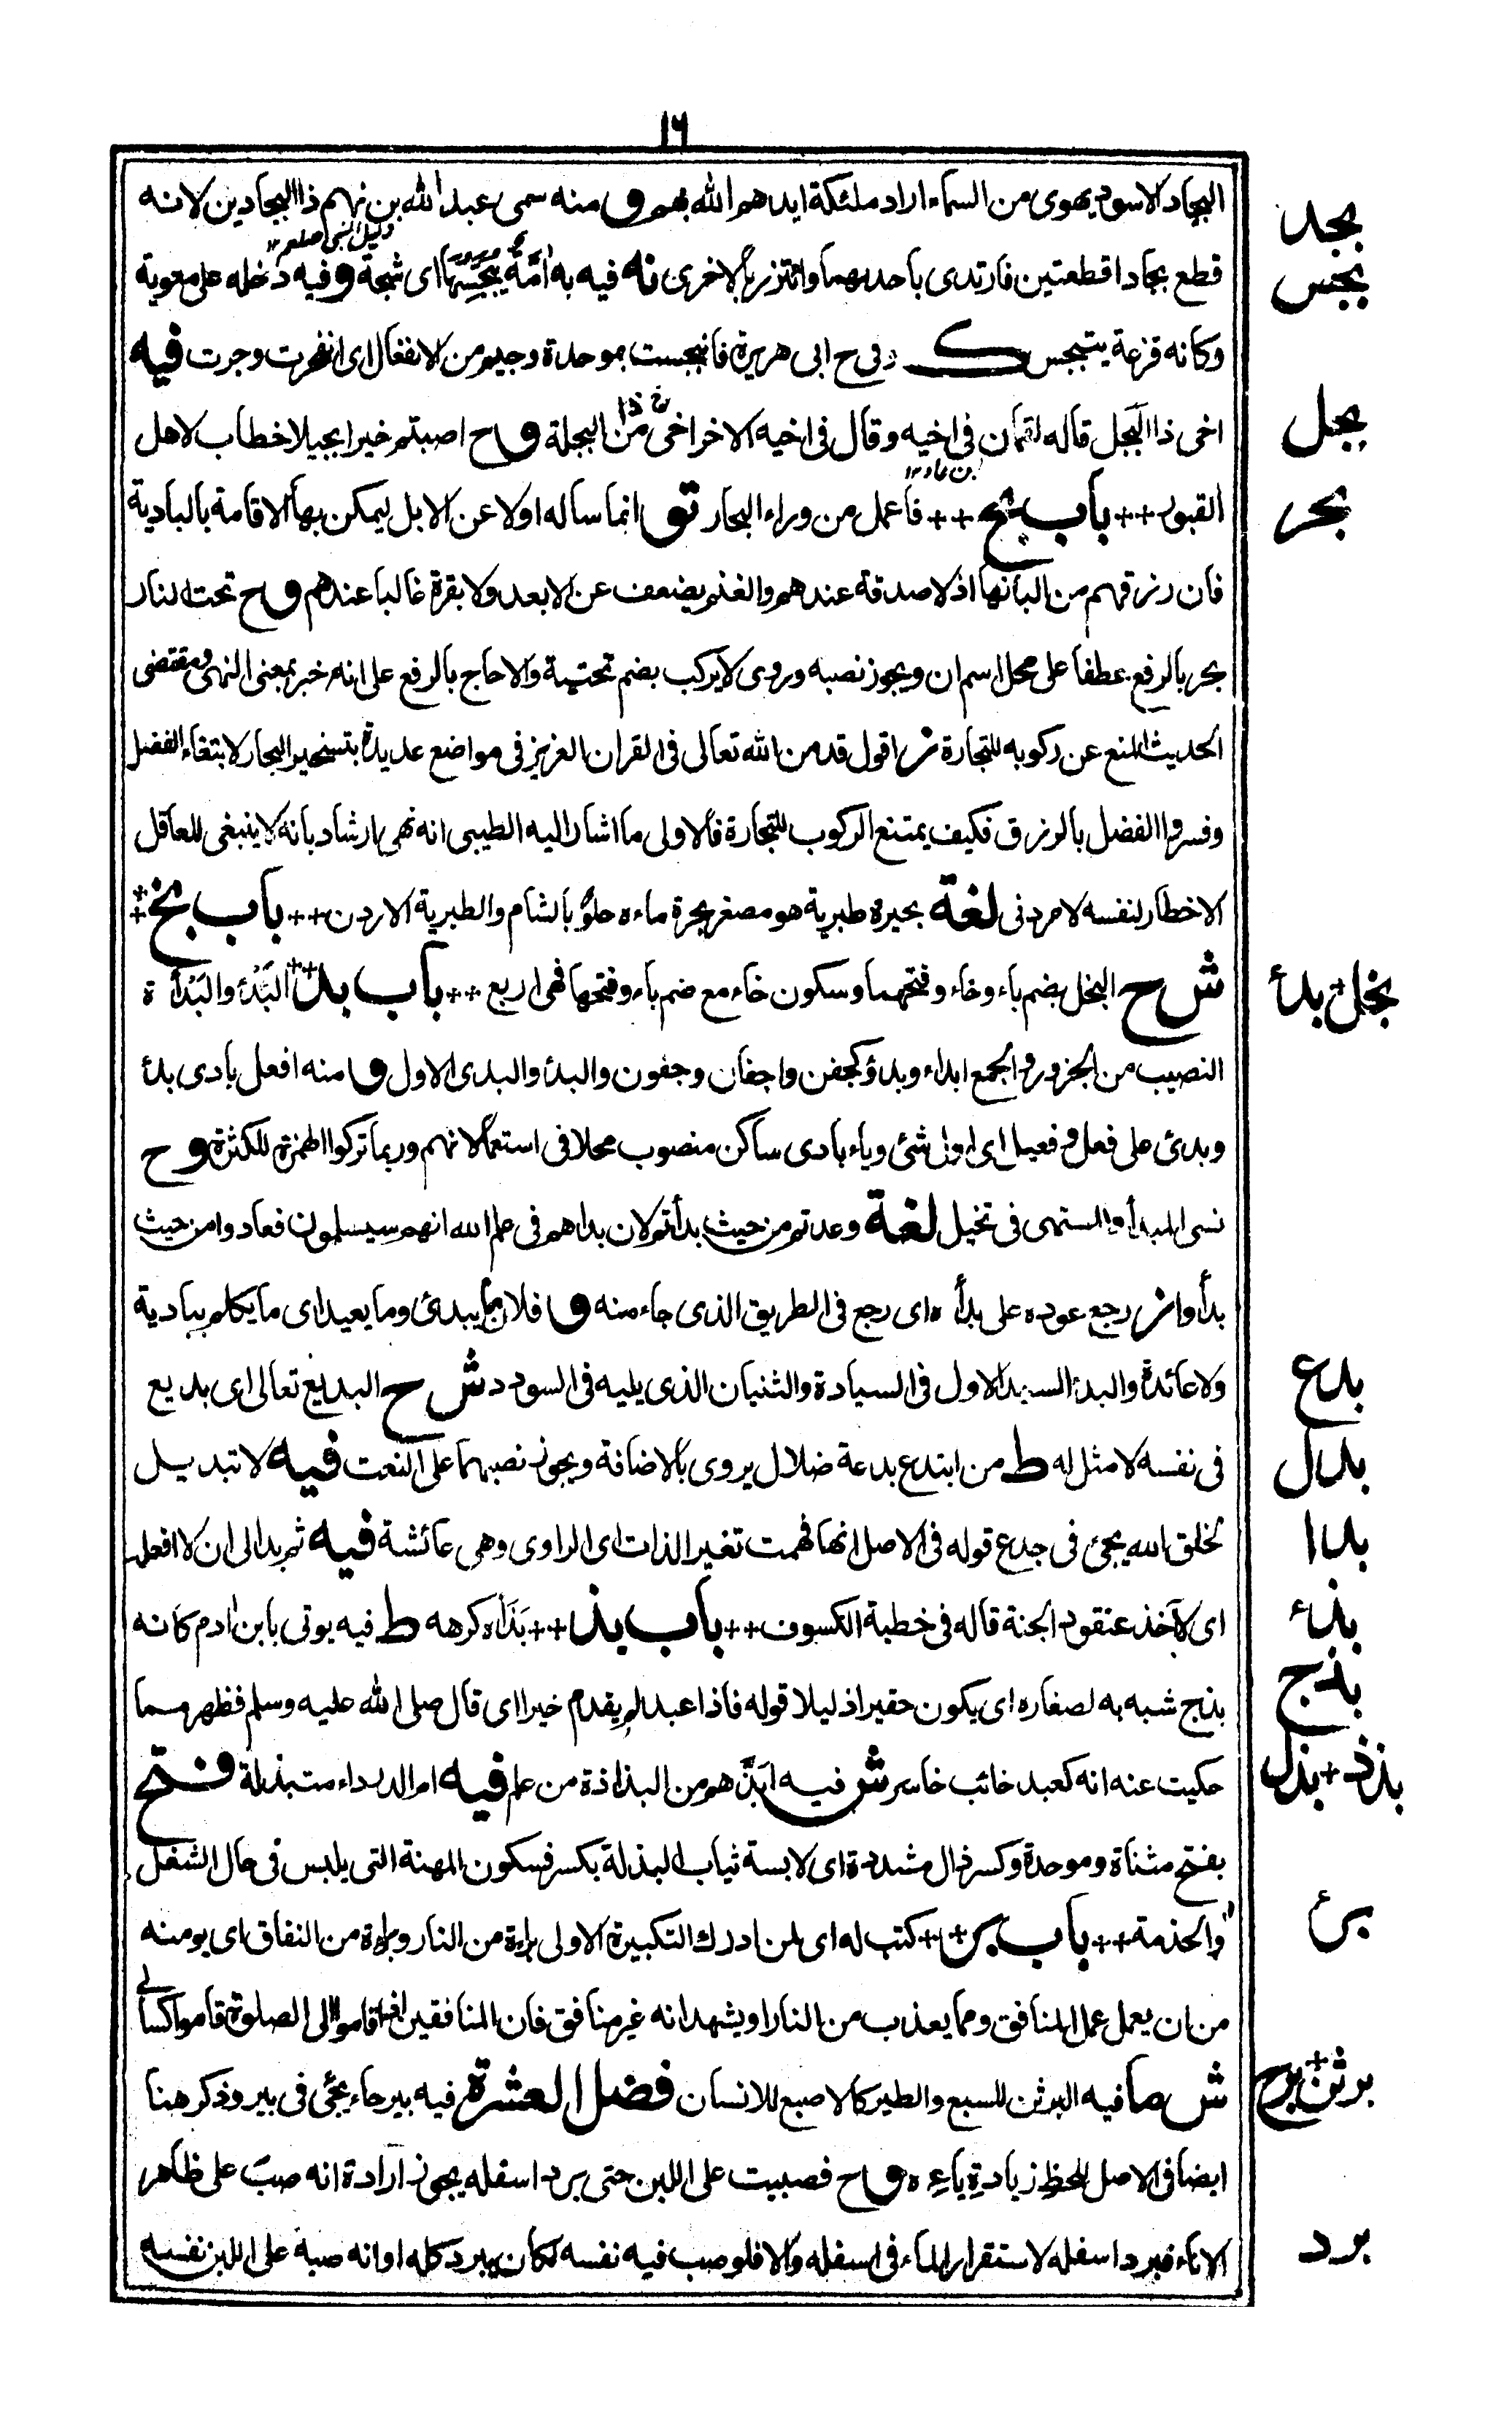 ١٦
البجاد الاسود يهوى من السماء اراد ملئكة ايدهم الله بهم و منه سمى عبد الله بن نهم ذا البجادين لانه
دليل النبى صلعم ١٢
قطع بجادا قطعتين فارتدى باحدىهما وائتزر بالاخرى نه فيه به امّة يبجسها اى شجة وفيه دخله على معوية
وكانه قزعة يتبجس ك وفى ح ابى هريرة فانبجست بموحدة وجيم من الانفعال اى انفجرت وجرت فيه
اخى ذا البجل قاله لقمان فى اخيه وقال فى اخيه الاخر اخى من البجلة و ح اصبتم خيرا بجيلا خطاب لاهل
خ ذا
بن عاد ١٢
القبور ++ باب بح ++ فاعمل من وراء البحار تو انما ساله اولا عن الابل ليمكن بها الاقامة بالبادية
فان رزقهم من البانها اذ لا صدقة عندهم والغنم يضعف عن الابعد ولا بقرة غالبا عندهم و ح تحت النار
بحر بالرفع عطفا على محل اسم ان ويجوز نصبه وروى لا يركب بضم تحتية والا حاج بالرفع على انه خبر بمعنى النهى ومقتضى
الحديث المنع عن ركوبه للتجارة ز اقول قد من الله تعالى فى القران العزيز فى مواضع عديدة بتسخير البحار لابتغاء الفضل
وفسروا الفضل بالرزق فكيف يمتنع الركوب للتجارة فالاولى ما اشار اليه الطيبى انه نهى ارشاد بانه لا ينبغى للعاقل
الاخطار لنفسه لامر دنى لغة بحيرة طبرية هو مصغر بحرة ماءه حلو بالشام والطبرية الاردن ++ باب بخ ++
ش ح البخل بضم باء وخاء وفتحهما وسكون خاء مع ضم باء وفتحها فهى اربع ++ باب بد ++ البَدْئ والبَدْأ ة
النصيب من الجزور والجمع ابداء وبدؤ كجفن واجفان وجفون والبدء والبدى الاول و منه افعل بادى بدء
وبدئ على فعل وفعيل اى اول شئ وياء بادى ساكن منصوب محلا فى استعمالاتهم وربما تركوا الهمزة للكثرة و ح
نسى المبدأ والمنتهى فى تخيل لغة وعدتم من حيث بدأتم لان بداهم فى علم الله انهم سيسلمون فعادوا من حيث
بدأوا ز رجع عوده على بدأ ه اى رجع فى الطريق الذى جاء منه و فلان ما يبدئ وما يعيد اى ما يكلم ببادية
ولا عائدة والبدء السيد الاول فى السيادة والثنيان الذى يليه فى السودد ش ح البديع تعالى اى بديع
فى نفسه لا مثل له ط من ابتدع بدعة ضلال يروى بالاضافة ويجوز نصبهما على النعت فيه لا تبديل
لخلق الله يجئ فى جدع قوله فى الاصل انها فهمت تغير الذات اى الراوى وهى عائشة فيه ثم بدا لى ان لا افعل
اى لا آخذ عنقود الجنة قاله فى خطبة الكسوف ++ باب بذ ++ بَذَأه كرهه ط فيه يوتى بابن ادم كانه
بذج شبه به لصغاره اى يكون حقيرا ذليلا قوله فاذا عبد لم يقدم خيرا اى قال صلى الله عليه وسلم فظهر مما
حكيت عنه انه كعبد خائب خاسر ش فيه ابَذّ هم من البذاذة من علم فيه ام الدرداء متبذلة فتح
بفتح مثناة وموحدة وكسر ذال مشددة اى لابسة ثياب البذلة بكسر فسكون المهنة التى يلبس فى حال الشغل
والخدمة ++ باب بر ++ كتب له اى لمن ادرك التكبيرة الاولى براءة من النار وبراءة من النفاق اى يومنه
من ان يعمل عمل المنافق ومما يعذب من النار او يشهد انه غير منافق فان المنافقين اذا قاموا الى الصلوة قاموا كسالى
ش صا فيه البرثن للسبع والطير كالاصبع للانسان فضل العشرة فيه بيرحاء يجئ فى بير وذكر هنا
ايضا فى الاصل للحظ زيادة ياءه و ح فصببت على اللبن حتى برد اسفله يجوز ارادة انه صب على ظاهر
الاناء فبرد اسفله لاستقرار الماء فى اسفله والا فلو صب فيه نفسه لكان يبرد كله او انه صبه على اللبن نفسه
بجد
بجس
بجل
بحر
بخل + بدأ
بدع
بدل
بدا
بذء
بذج
بذذ + بذل
برئ
برثن + برح
برد